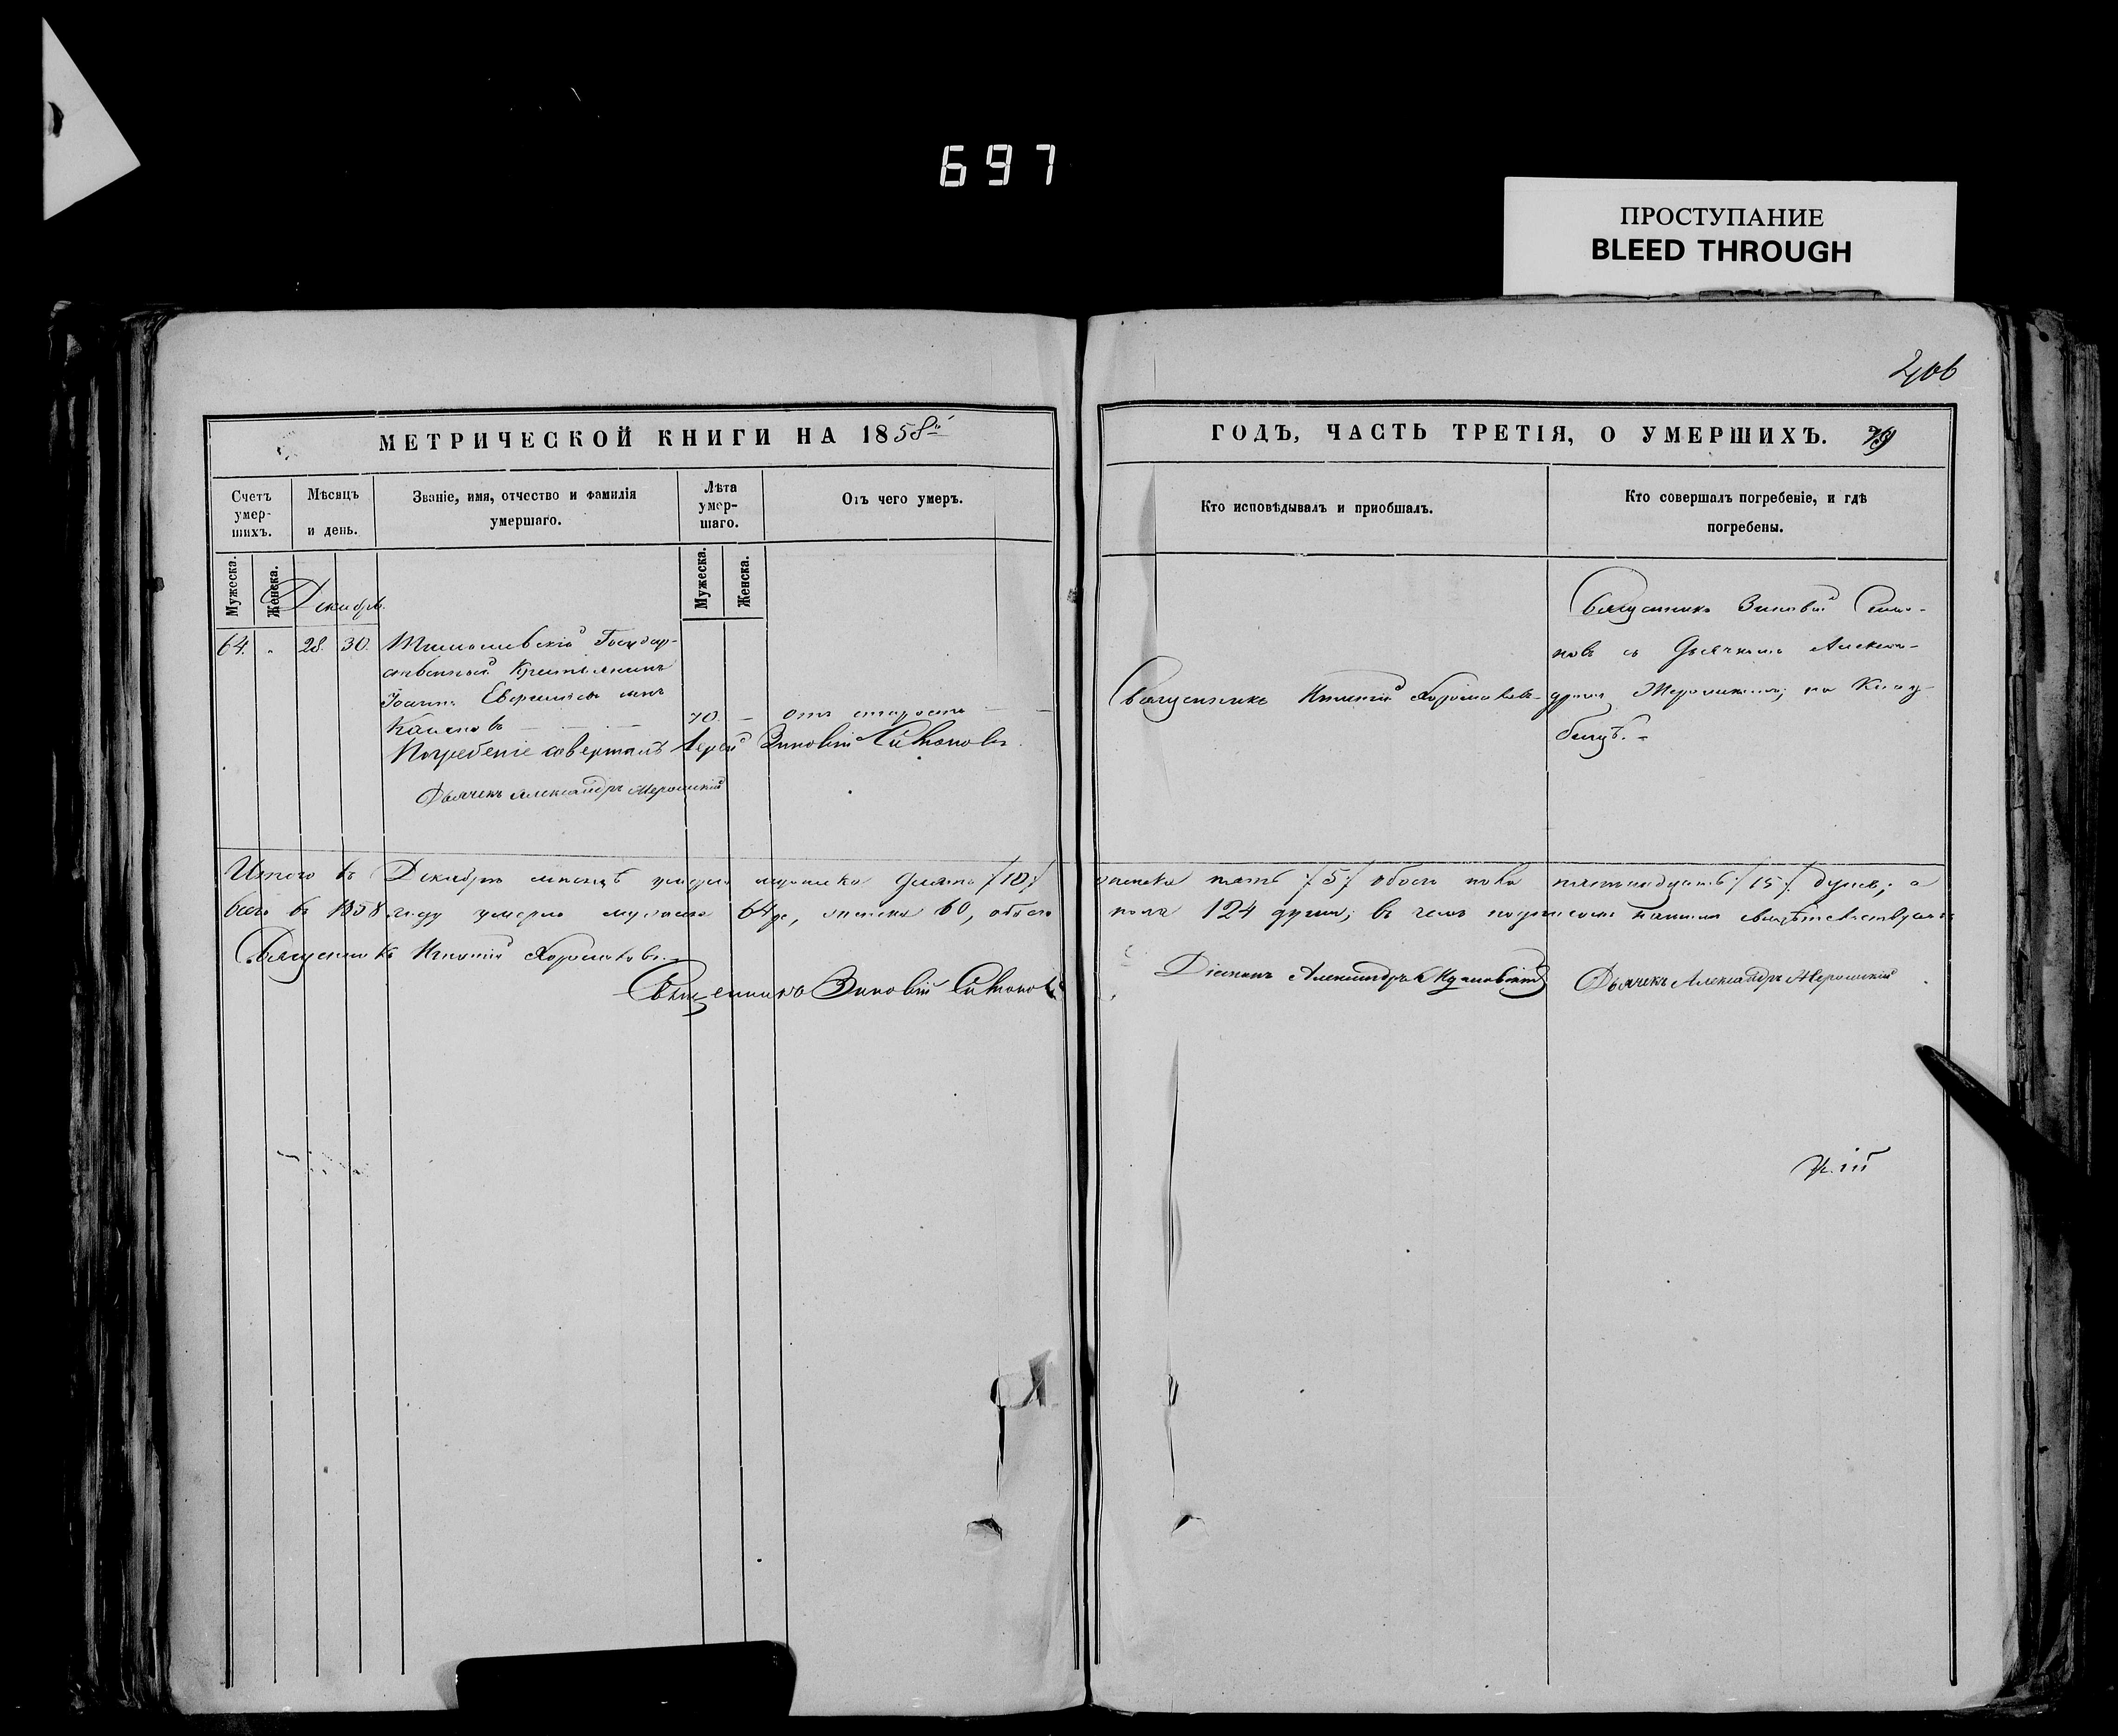 697
ПРОСТУПАНИЕ
BLEED THROUGH
206
МЕТРИЧЕСКОЙ КНИГИ НА 1858й
Счетъ умер-
шихъ.
Мѣсяцъ
и день.
Званіе, имя, отчество и фамилія
умершаго.
Лѣта
умер-
шаго.
Отъ чего умеръ.
Мужеска.
Женска.
Мужеска.
Женска.
Декабрь.
64. 28. 30.
Государ-
ственный Крестьянинъ
Іоаннъ сынъ
70. отъ старости
Погребеніе совершалъ Іерей Зиновій Симоновъ.
Дьячекъ Александръ
Итого въ Декабрѣ мѣсяцѣ умерло мужеска десять /10/
всего въ 1858 году умерло мужеска 64, женска 60, обоего
Священникъ Игнатій
Священникъ Зиновій Симоновъ
ГОДЪ, ЧАСТЬ ТРЕТІЯ, О УМЕРШИХЪ.
Кто исповѣдывалъ и приобшалъ.
Кто совершалъ погребеніе, и гдѣ
погребены.
Священникъ Игнатій
Священникъ Зиновій Симо-
новъ съ Дьячкомъ Алексан-
дромъ на Клад-
бищѣ.
женска пять /5/ обоего пола пятнадцать /15/ душъ; а
пола 124 души; въ чемъ подписомъ нашимъ свидѣтельствуемъ
Діаконъ Александръ
Дьячекъ Александръ